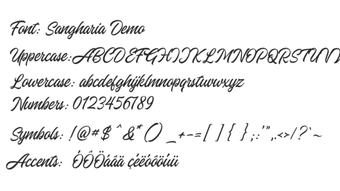 Font: Sangharia Demo
Uppercase: ABCDEFGHIJKLMNOPQRSTUV
Lowercase: abcdefghijklmnopqrstuvwxyz
Numbers: 0123456789
Symbols: !@#$^&*() _+-=[]{};:'",.<>/?`~
Accents: ÓÔÖáâä çéëóôöíúü